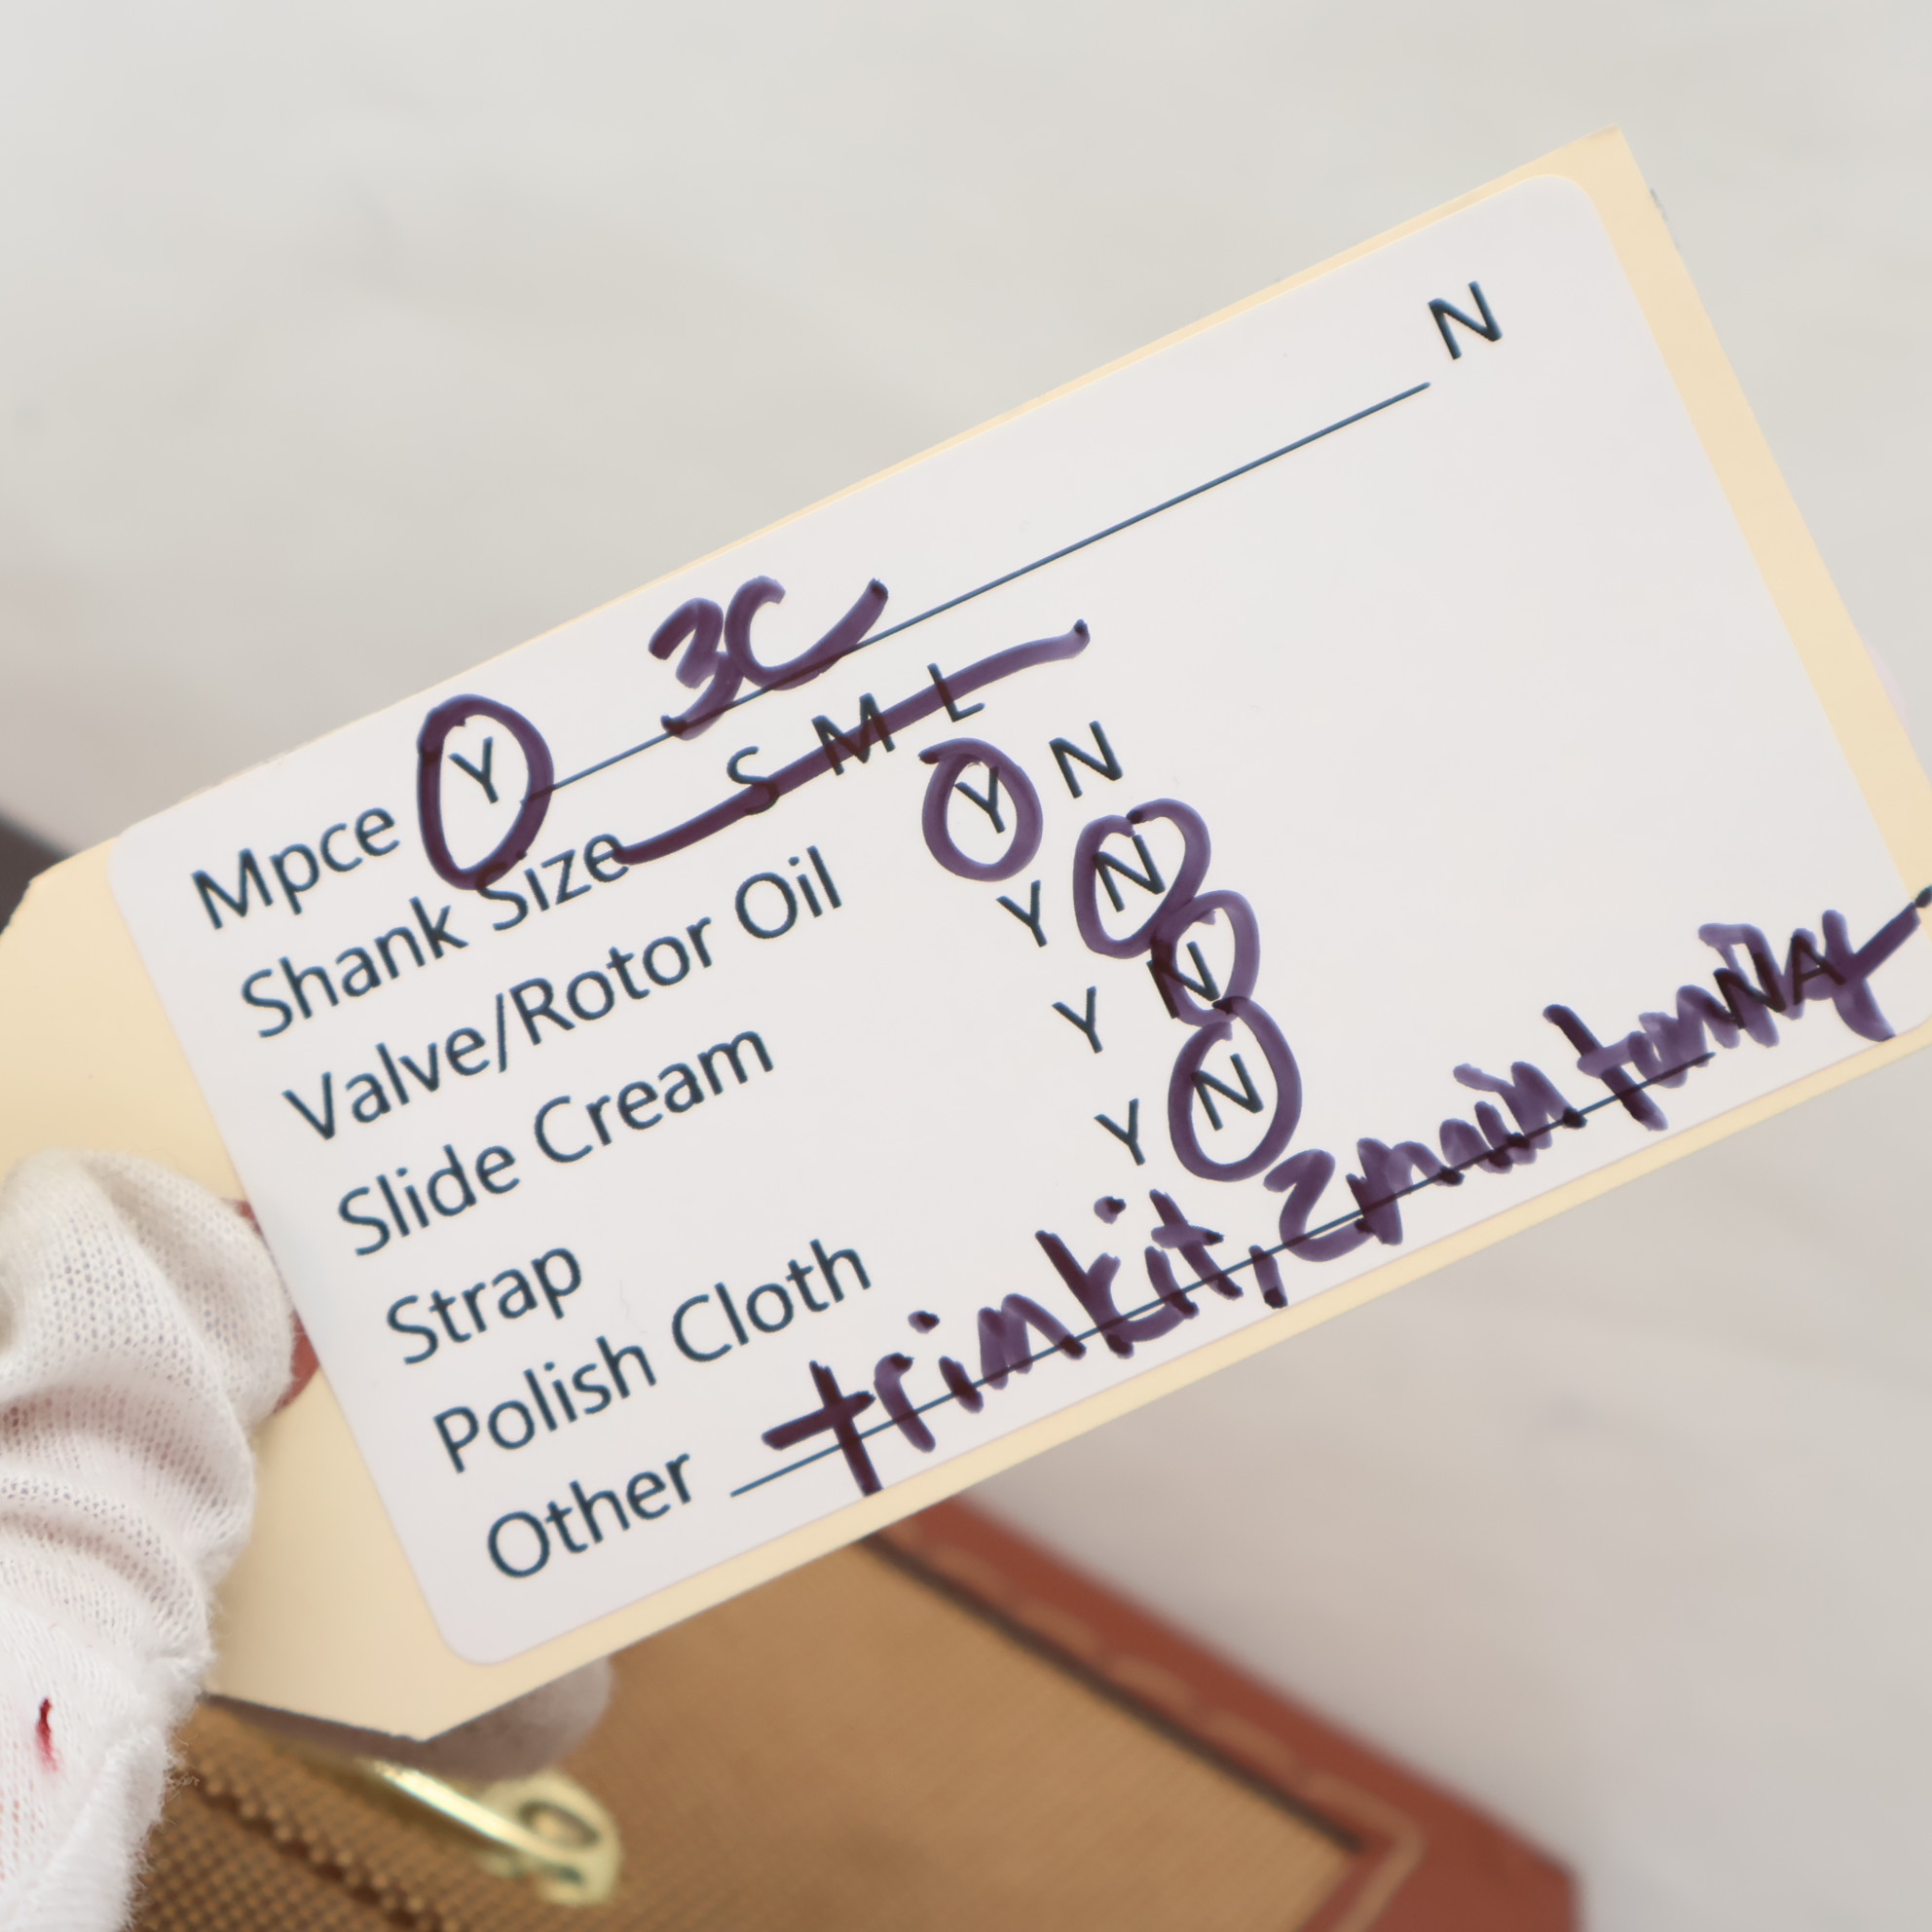 Mpce Y 3C N
Shank Size S M L
Valve/Rotor Oil Y N
Slide Cream Y N
Strap Y N
Polish Cloth Y N
Other trim kit, 2 main tuning NA